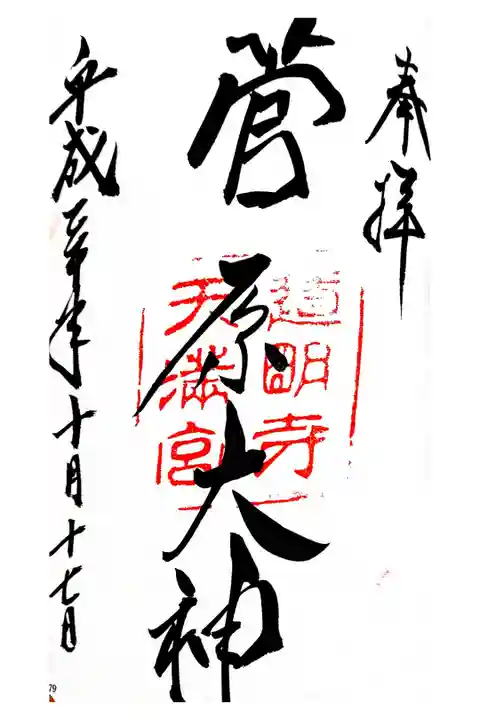 奉拝
菅原大神
道明寺
天満宮
平成 年十月十七日
79